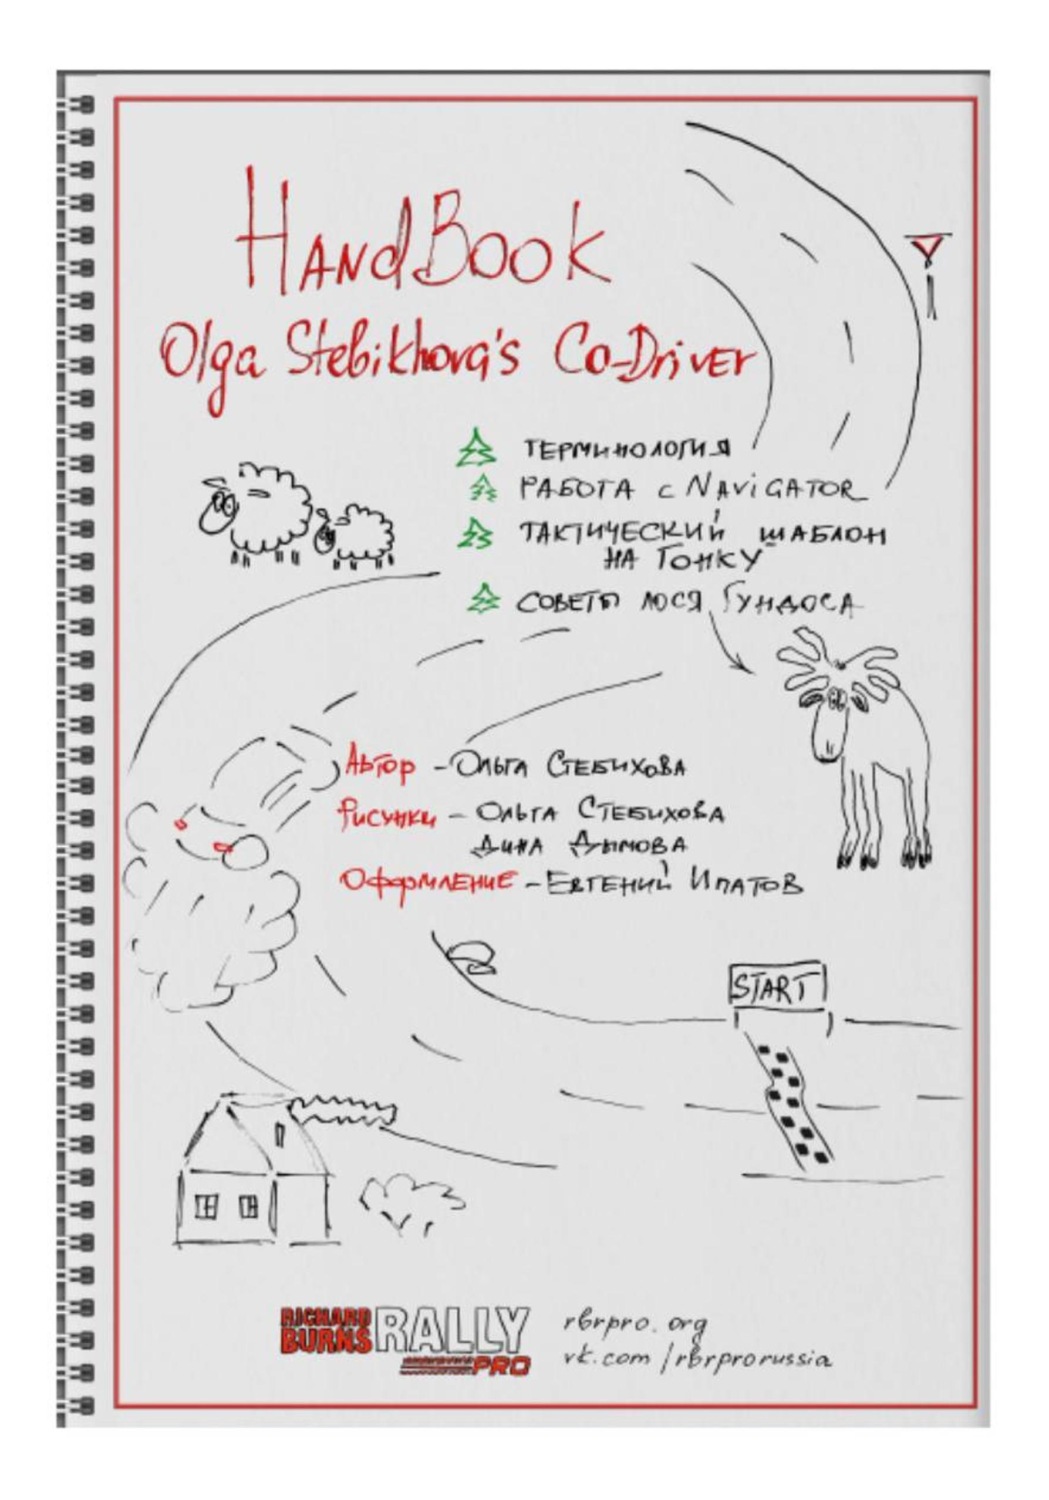 HandBook
Olga Stebikhova's Co-Driver
ТЕРМИНОЛОГИЯ
РАБОТА С NAVIGATOR
ТАКТИЧЕСКИЙ ШАБЛОН
НА ГОНКУ
СОВЕТЫ ЛОСЯ ГУНДОСА
Автор - Ольга Стебихова
Рисунки - Ольга Стебихова
Дина Дымова
Оформление - Евгений Ипатов
START
RICHARD BURNS RALLY PRO
rbrpro.org
vk.com/rbrprorussia